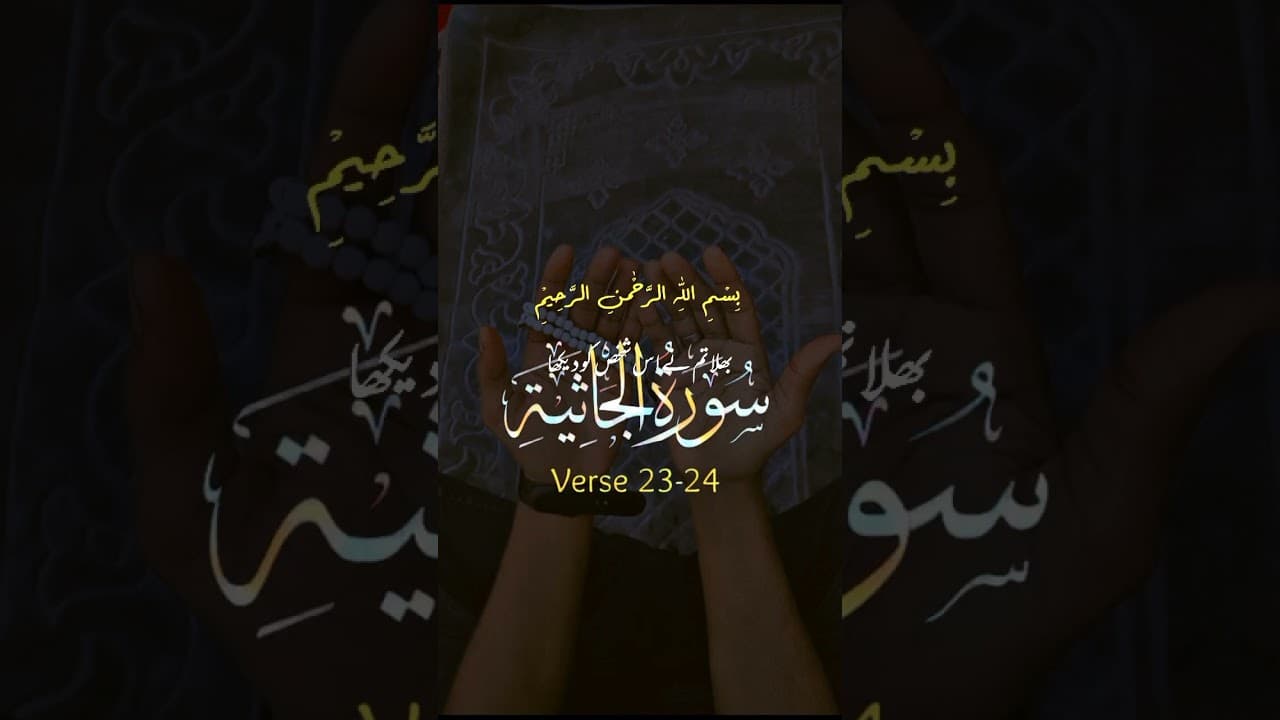 بِسْمِ اللّٰهِ الرَّحْمٰنِ الرَّحِيْمِ
بھلا تم نے اس شخص کو دیکھا
سُورَةُ الْجَاثِيَةِ
Verse 23-24